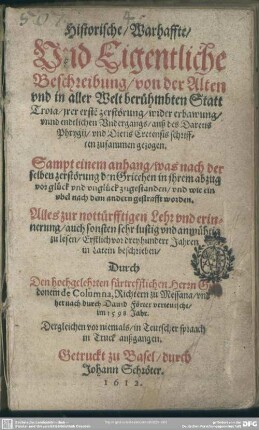 Historische/ Warhaffte/
Vnd Eigentliche
Beschreibung/ von der Alten
vnd in aller Welt berühmbten Statt
Troia/ jrer erste zerstörung/ wider erbawung/
vnnd endtlichen Vndergang/ auß des Daretis
Phrygij/ vnd Dictis Cretensis schriff-
ten zusammen gezogen.
Sampt einem anhang/ was nach der
selben zerstörung den Griechen in jhrem abzug
vor glück vnd vnglück zugestanden/ vnd wie ein
vbel nach dem andern gestrafft worden.
Alles zur nottürfftigen Lehr vnd erin-
nerung/ auch sonsten sehr lustig vnd anmütig
zu lesen/ Erstlich vor drey hundert Jahren
in Latein beschrieben/
Durch
Den hochgelehrten fürtrefflichen Herrn Gui
donem de Columna, Richtern zu Messana/ vnd
hernach durch Dauid Förter verteutscht/
im 1598 Jahr.
Dergleichen vor niemals/ in Teutscher sprach
in Truck außgangen.
Getruckt zu Basel/ durch
Johann Schröter.
1612.